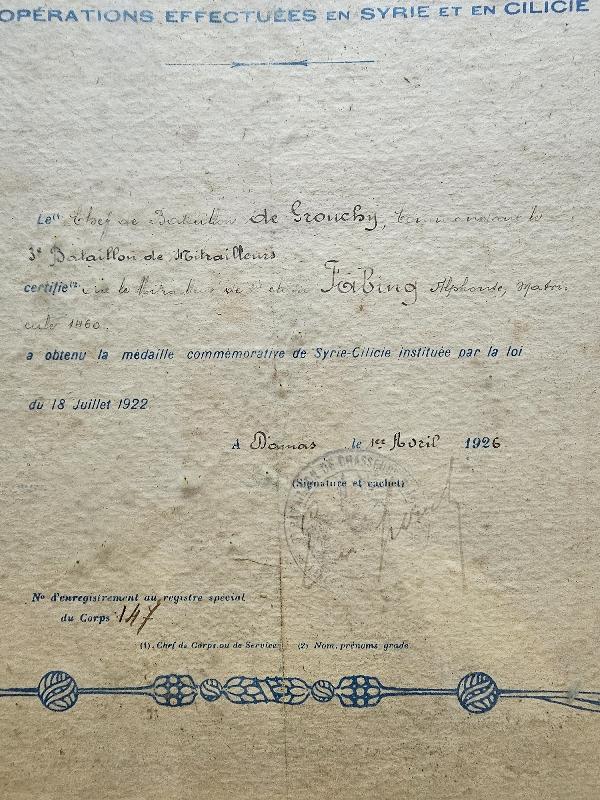 OPÉRATIONS EFFECTUÉES EN SYRIE ET EN CILICIE
Le⁽¹⁾ Chef de Bataillon de Grouchy, Commandant le
3e Bataillon de Mitrailleurs
certifie⁽²⁾ que le de Fabing Alphonse, Matri-
cule 1460.
a obtenu la médaille commémorative de Syrie-Cilicie instituée par la loi
du 18 Juillet 1922
A Damas le 1er Avril 1926
(Signature et cachet)
BATAILLON DE CHASSEURS
N° d'enregistrement au registre spécial
du Corps 147
(1). Chef de Corps ou de Service (2) Nom, prénoms grade